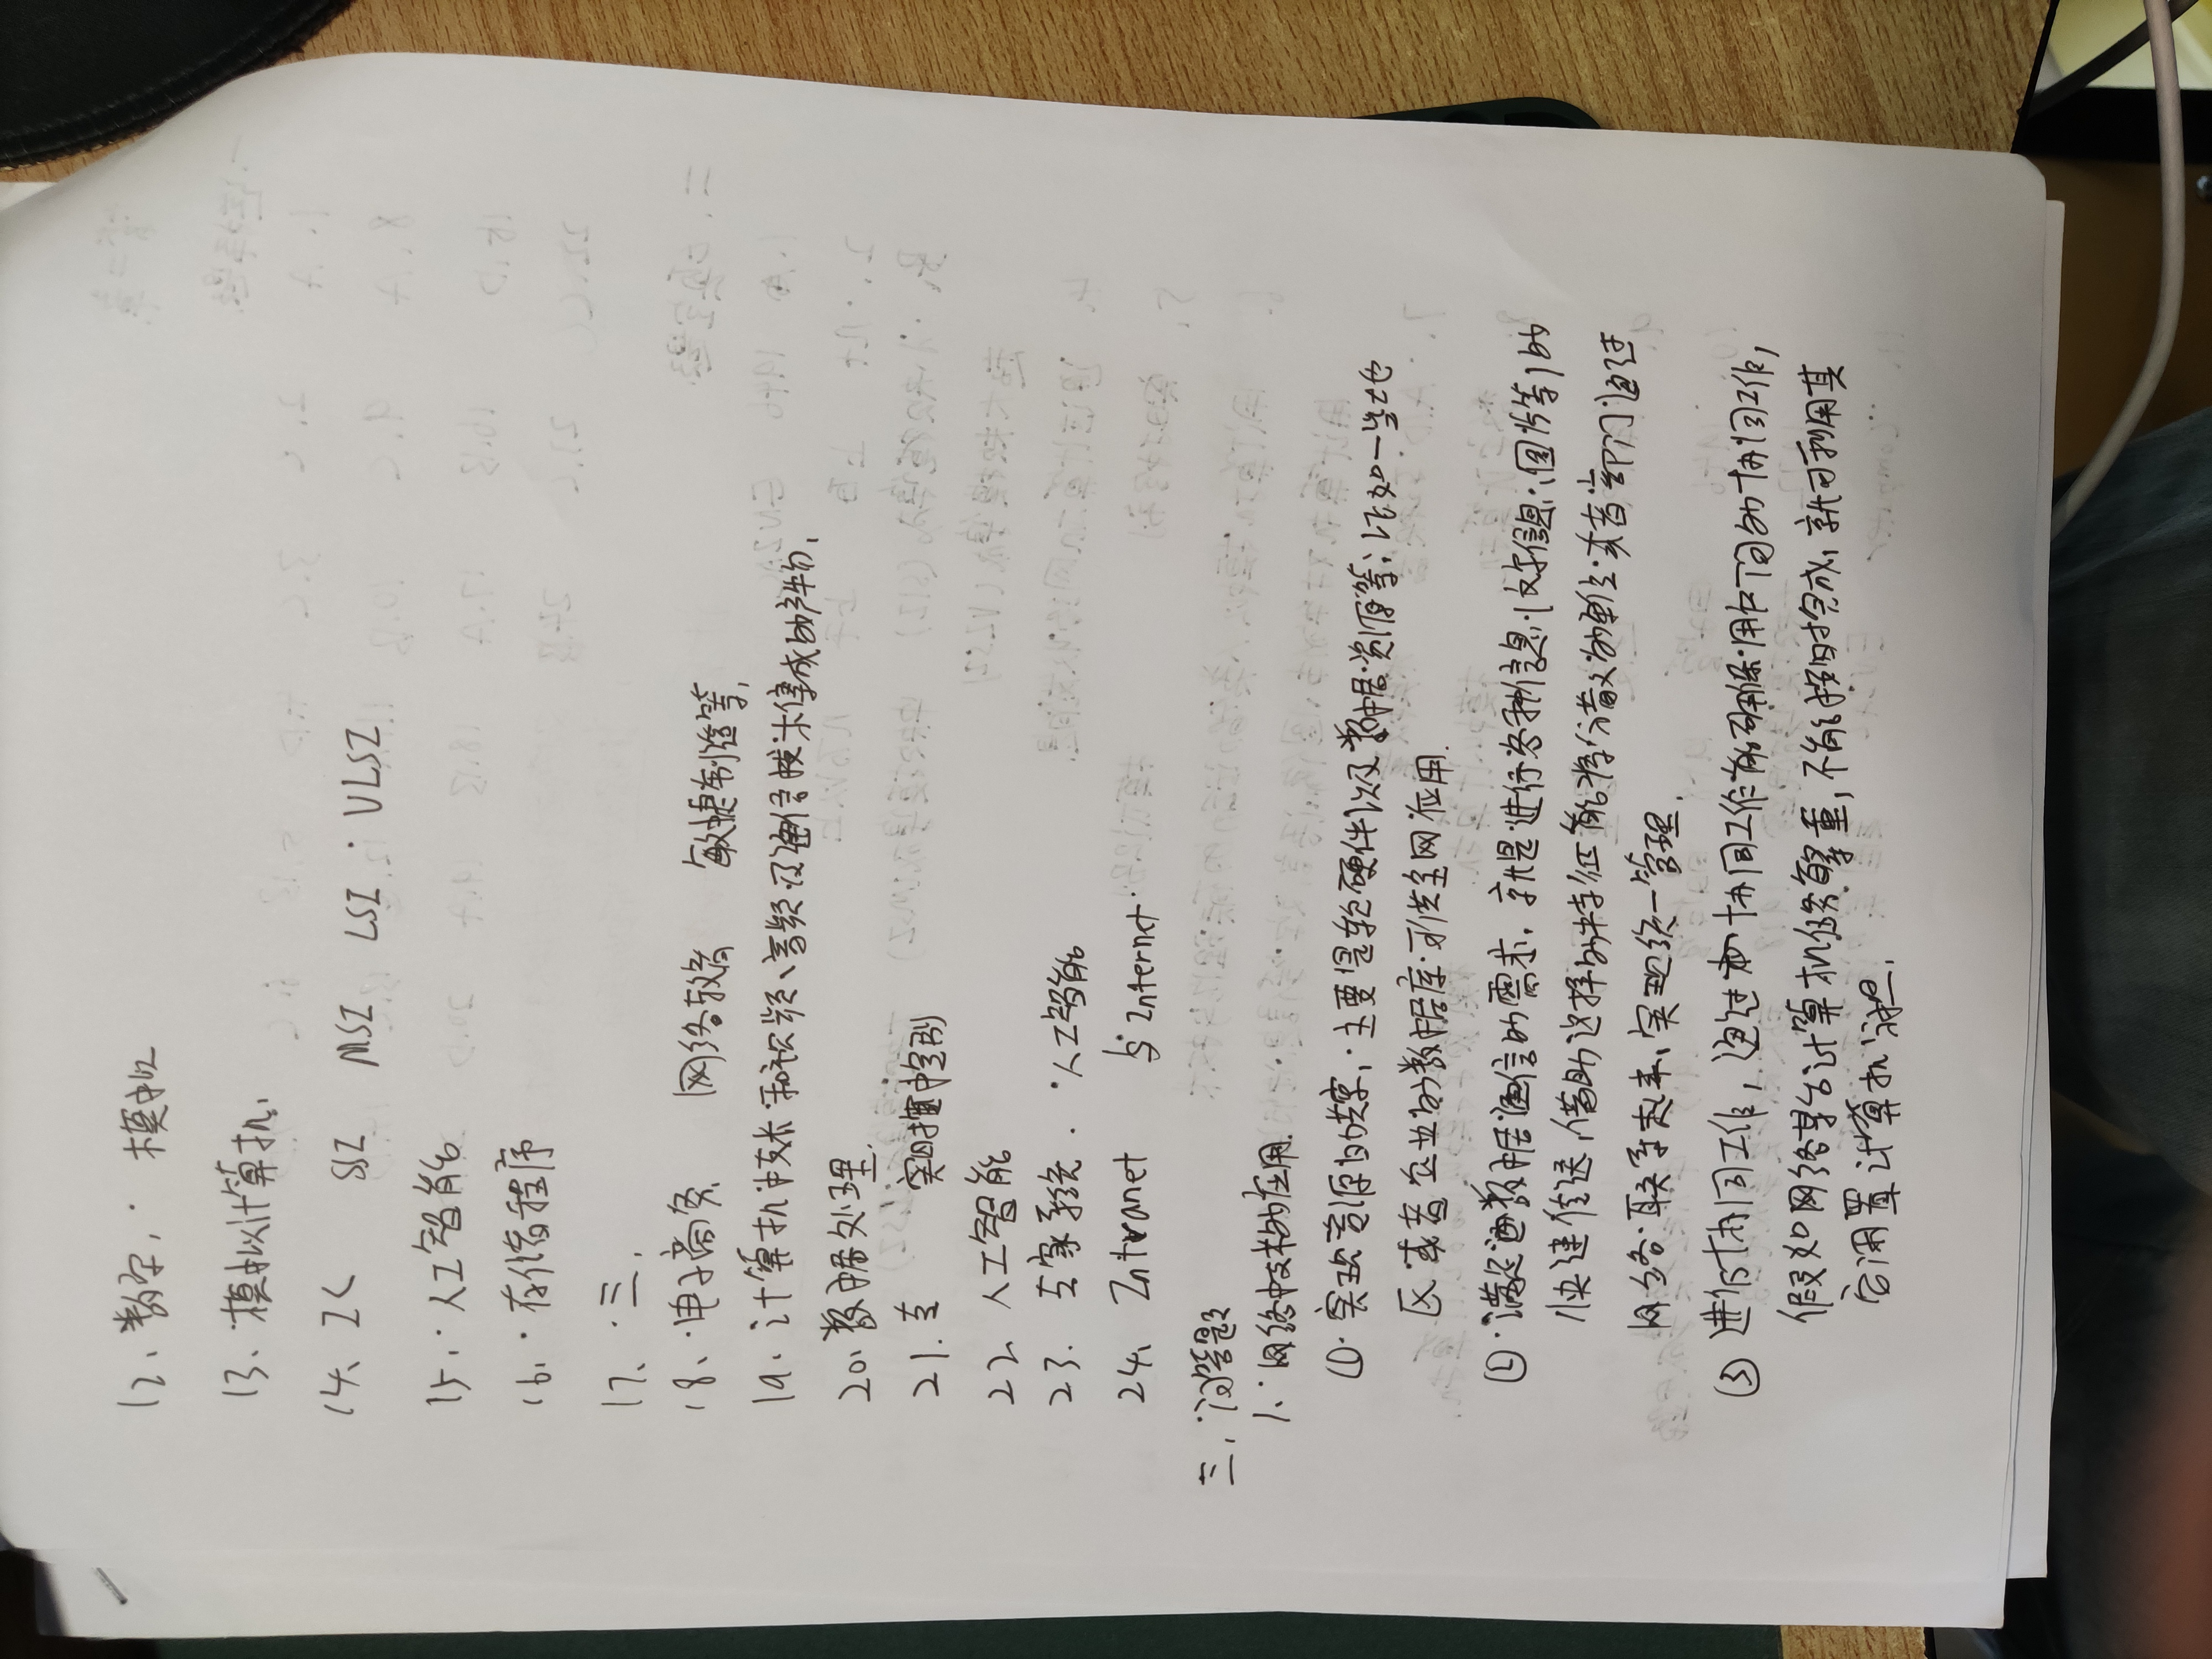 12、数字, 模拟
13、模拟计算机,
14、IC SSI MSI LSI VLSI
15、人工智能
16、存储程序
17、三,
18、电子商务 网络教育 敏捷制造等,
19、计算机技术和视频、音频及通信技术集成的产物,
20、数据处理.
21. 实时控制
22、人工智能
23. 专家系统. 人工智能
24、Intranet 与Internet
三, 问答题
1、网络技术的应用.
① 实现资源的共享, 主要是软硬件以及数据资源等; 比如一些地
区或者企业的数据库可供全网应用.
② 满足数据通信的需求, 就是进行各种信息(文字信息、图片等)的
快速传送, 借助这样的特征能将分散的单位或者部门通过
网络联系起来, 实现统一管理.
③ 进行协同工作, 通过协同工作能确保用户间的协同工作,
假如网络某台计算机任务繁重, 不能按时完成, 就可利用其
它闲置计算机分担.